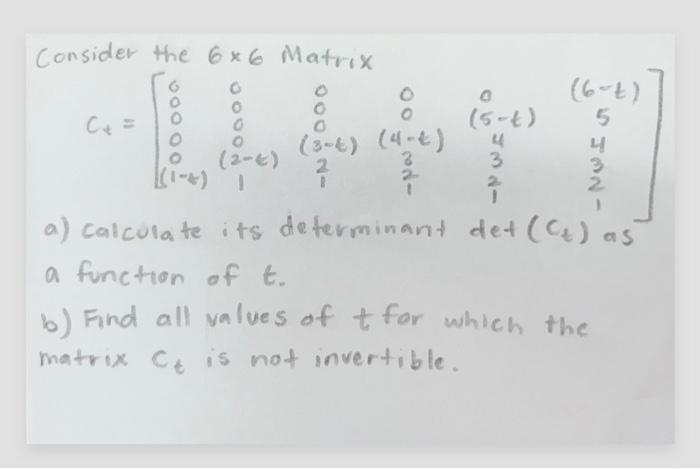 Consider the 6x6 Matrix
0 0 0 0 0 (6-t)
0 0 0 0 (5-t) 5
Ct = 0 0 0 (4-t) 4 4
0 0 (3-t) 3 3 3
0 (2-t) 2 2 2 2
(1-t) 1 1 1 1 1
a) calculate its determinant det (Ct) as
a function of t.
b) Find all values of t for which the
matrix Ct is not invertible.